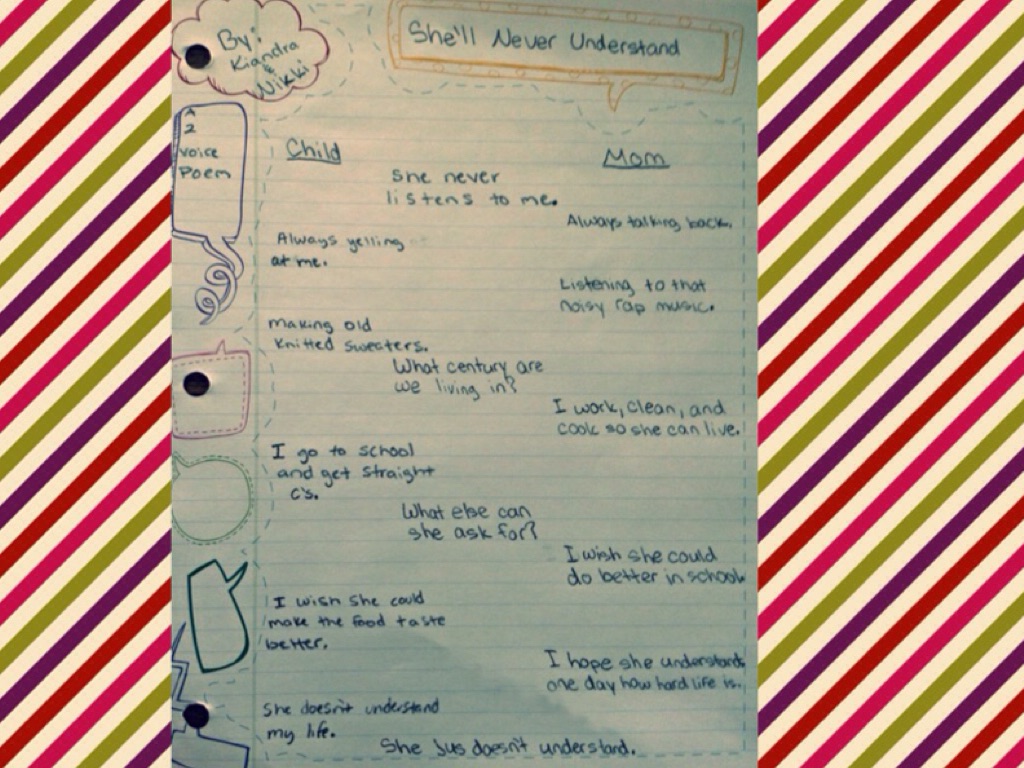 By:
Kiandra
&
Nikki
She'll Never Understand
A
2
voice
Poem
Child
Mom
She never
listens to me.
Always talking back.
Always yelling
at me.
Listening to that
noisy rap music.
Making old
knitted sweaters.
What century are
we living in?
I work, clean, and
cook so she can live.
I go to school
and get straight
C's.
What else can
she ask for?
I wish she could
do better in school
I wish she could
make the food taste
better.
I hope she understands
one day how hard life is.
She doesn't understand
my life.
She jus doesn't understand.